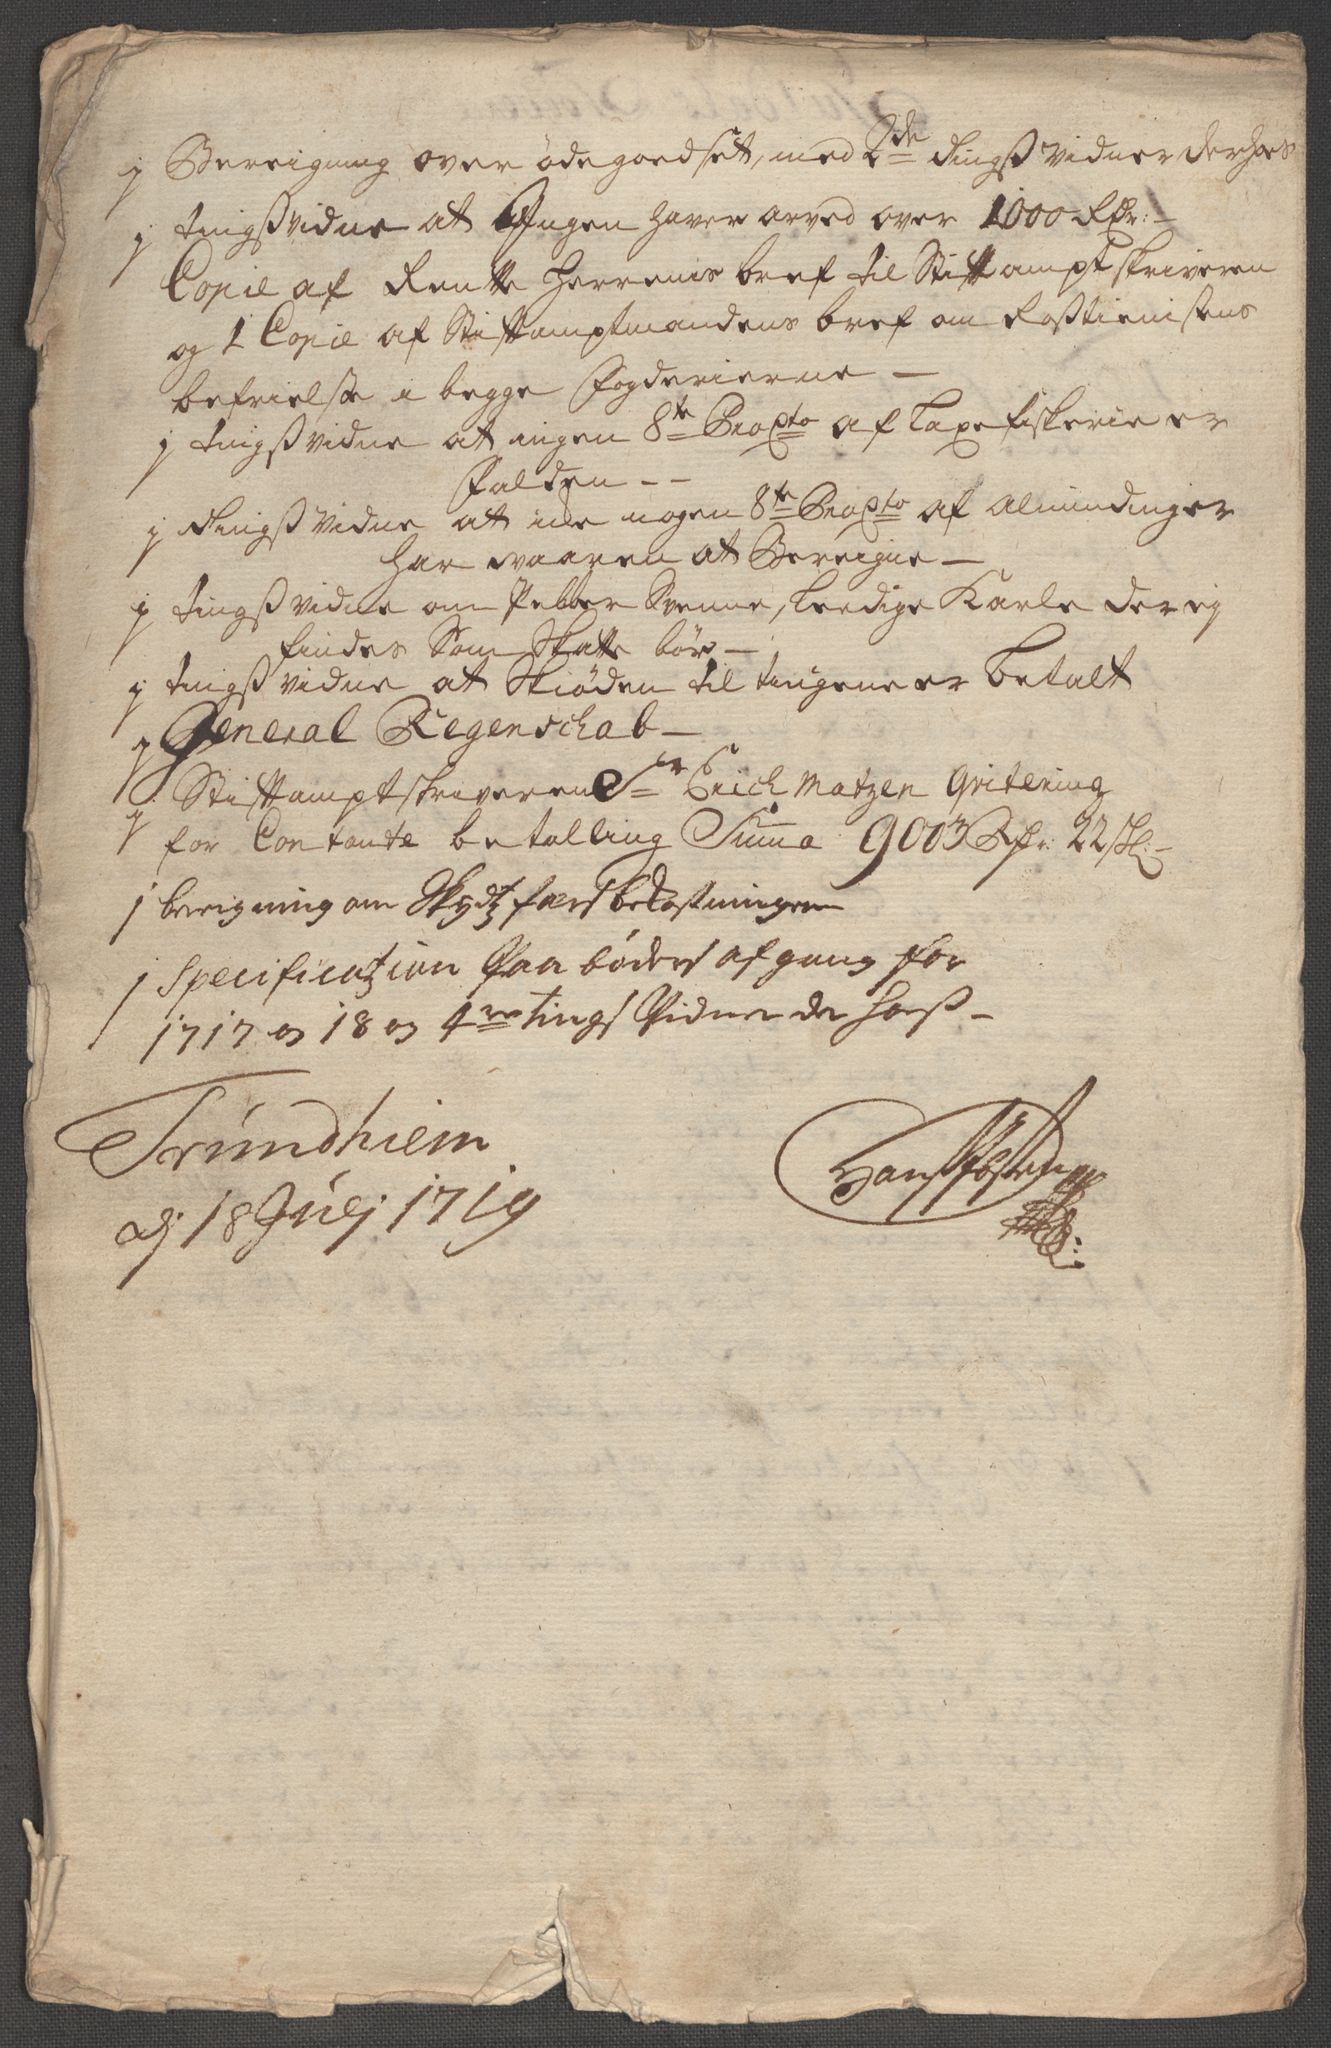 j Bereigning over ödegoedset, med 2de tingsvidner derhoes
j tingsvidne at Ingen haver arved over 1000 Rdr:
Copie af Rentte Herrenis bref til Stiftamptskriveren
og 1 Copie af Stiftamptmandens bref om Rostienistens
befrielse i begge Fogderierne —
j tingsvidne at ingen 8te Parto af Laxefiskerie er
Falden --
j tingsvidne at icke nogen 8te Parto af almindinger
har vaaren at Bereigne —
j tingsvidne om Pebber Svenne, Leedige Karle der ej
findes Som Skatte bör —
j tingsvidne at Skiöden til tingene er betalt
j General Regenschab —
j Stiftamptskriveren Sr Erich Matzen Qvitering
for Contante betalling Suma 9003 Rdr: 22 sk:
j bereigning om Skydtzfærsbekostningen
j Specification Paa böders afgang for
1717 og 18 og 4re tings Vidner der hoes —
Trundhiem
dj 18 Julj 1719
Hans